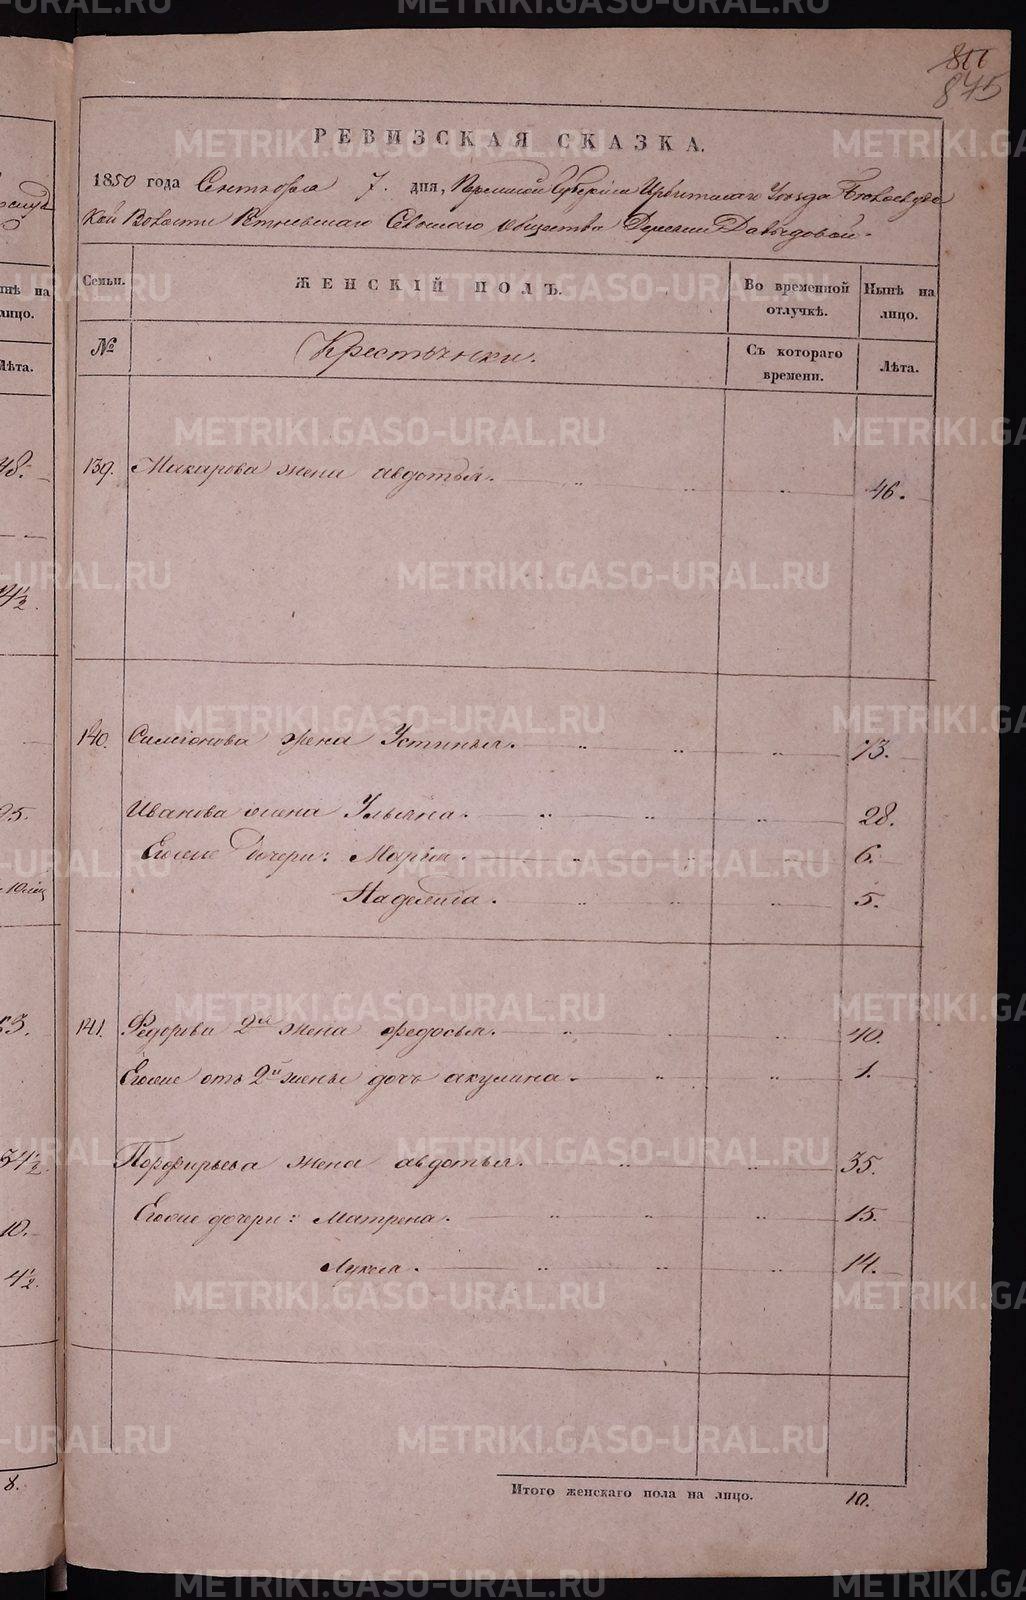 811
845
РЕВИЗСКАЯ СКАЗКА.
1850 года Сентября 7. дня, Пермской Губерніи Ирбитскаго Уѣзда Бѣлослудс
кой Волости Сельскаго Общества Деревни Давыдовой.
Семьи. ЖЕНСКІЙ ПОЛЪ. Во временной отлучкѣ. Нынѣ на лицо.
№ Крестьянки. Съ котораго времени. Лѣта.
139. Макарова жена авдотья. 46.
140. Симіонова жена Устинья. 73.
Иванова жена Ульяна. 28.
Еговые Дочери: Марія. 6.
Надежда. 5.
141. Федорова 2я жена федосья. 40.
Еговые отъ 2й жены дочь акулина. 1.
Порфирьева жена авдотья. 35.
Еговые дочери: Матрена. 15.
Лукья. 14.
Итого женскаго пола на лицо. 10.
нѣ на
лицо.
Лѣта.
48.
14½.
25.
53.
34½.
10.
4½.
8.
METRIKI.GASO-URAL.RU